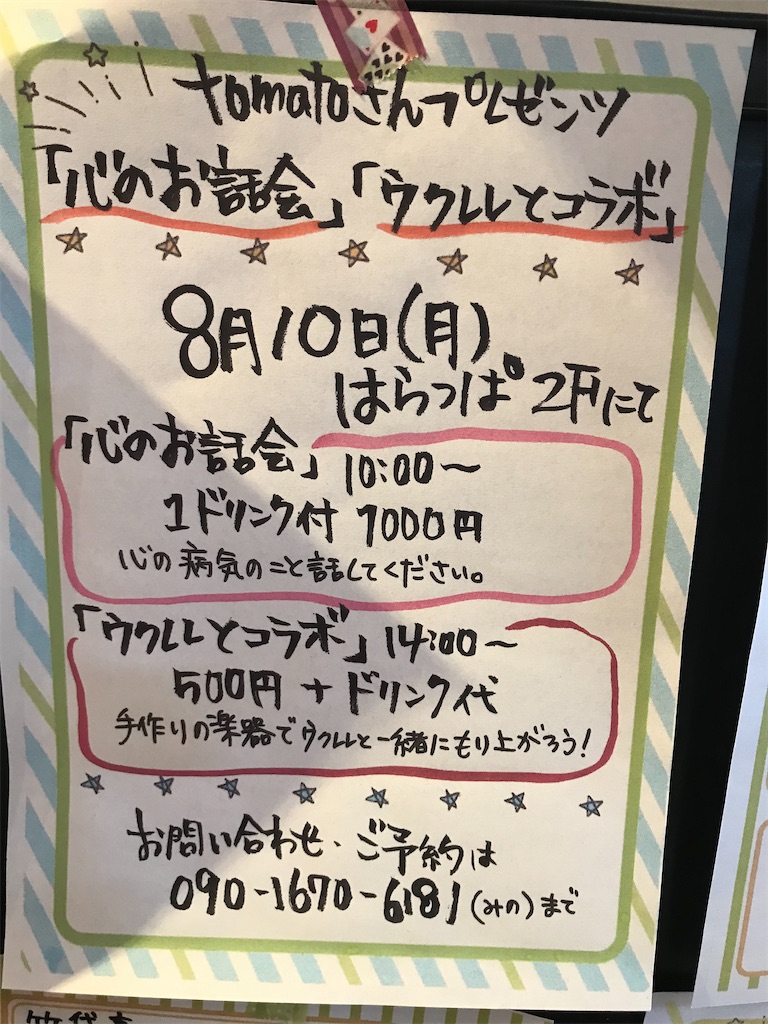 tomatoさんプレゼンツ
「心のお話会」「ウクレレとコラボ」
8月10日(月)
はらっぱ2Fにて
「心のお話会」10:00〜
1ドリンク付 1000円
心の病気のこと話してください。
「ウクレレとコラボ」14:00〜
500円+ドリンク代
手作りの楽器でウクレレと一緒にもり上がろう!
お問い合わせ・ご予約は
090-1670-6181(みの)まで